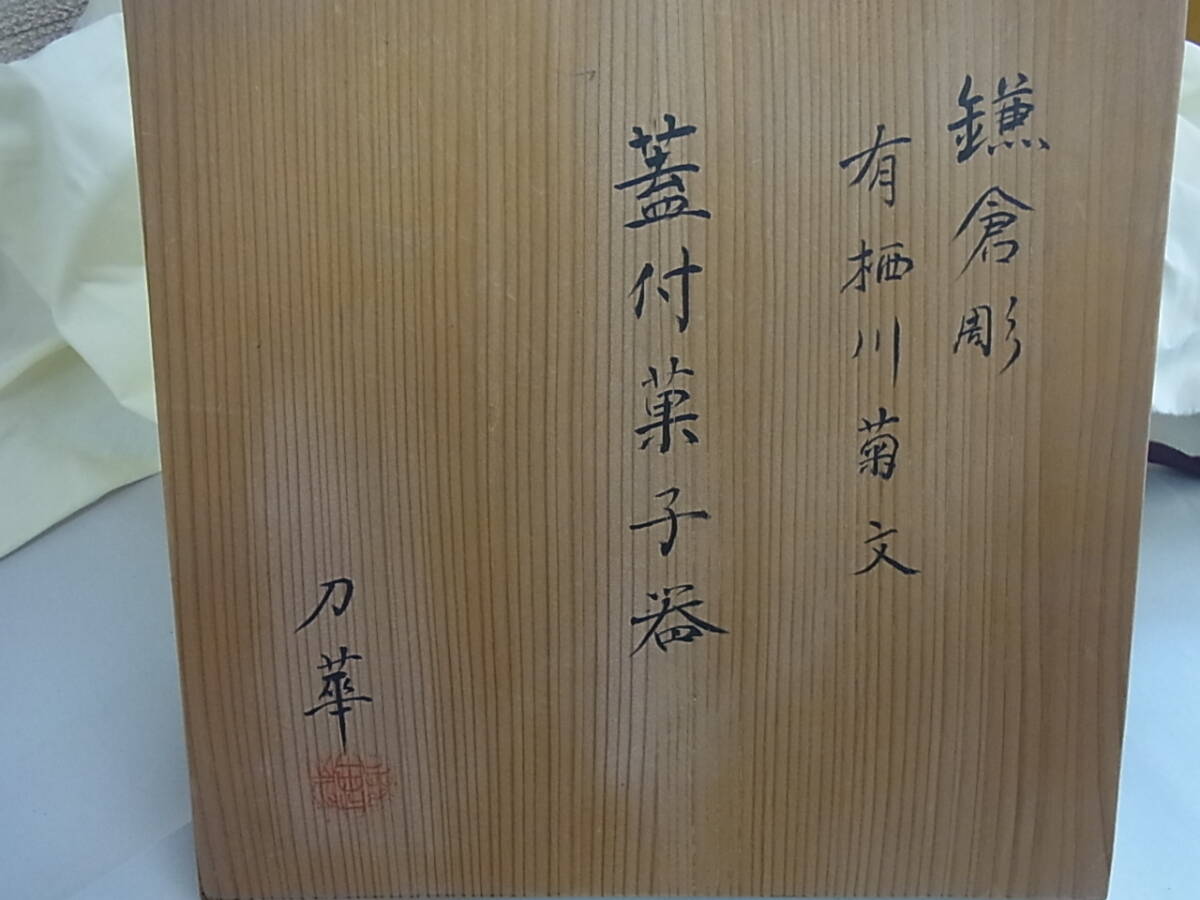 鎌倉彫
有栖川菊文
蓋付菓子器
刀華